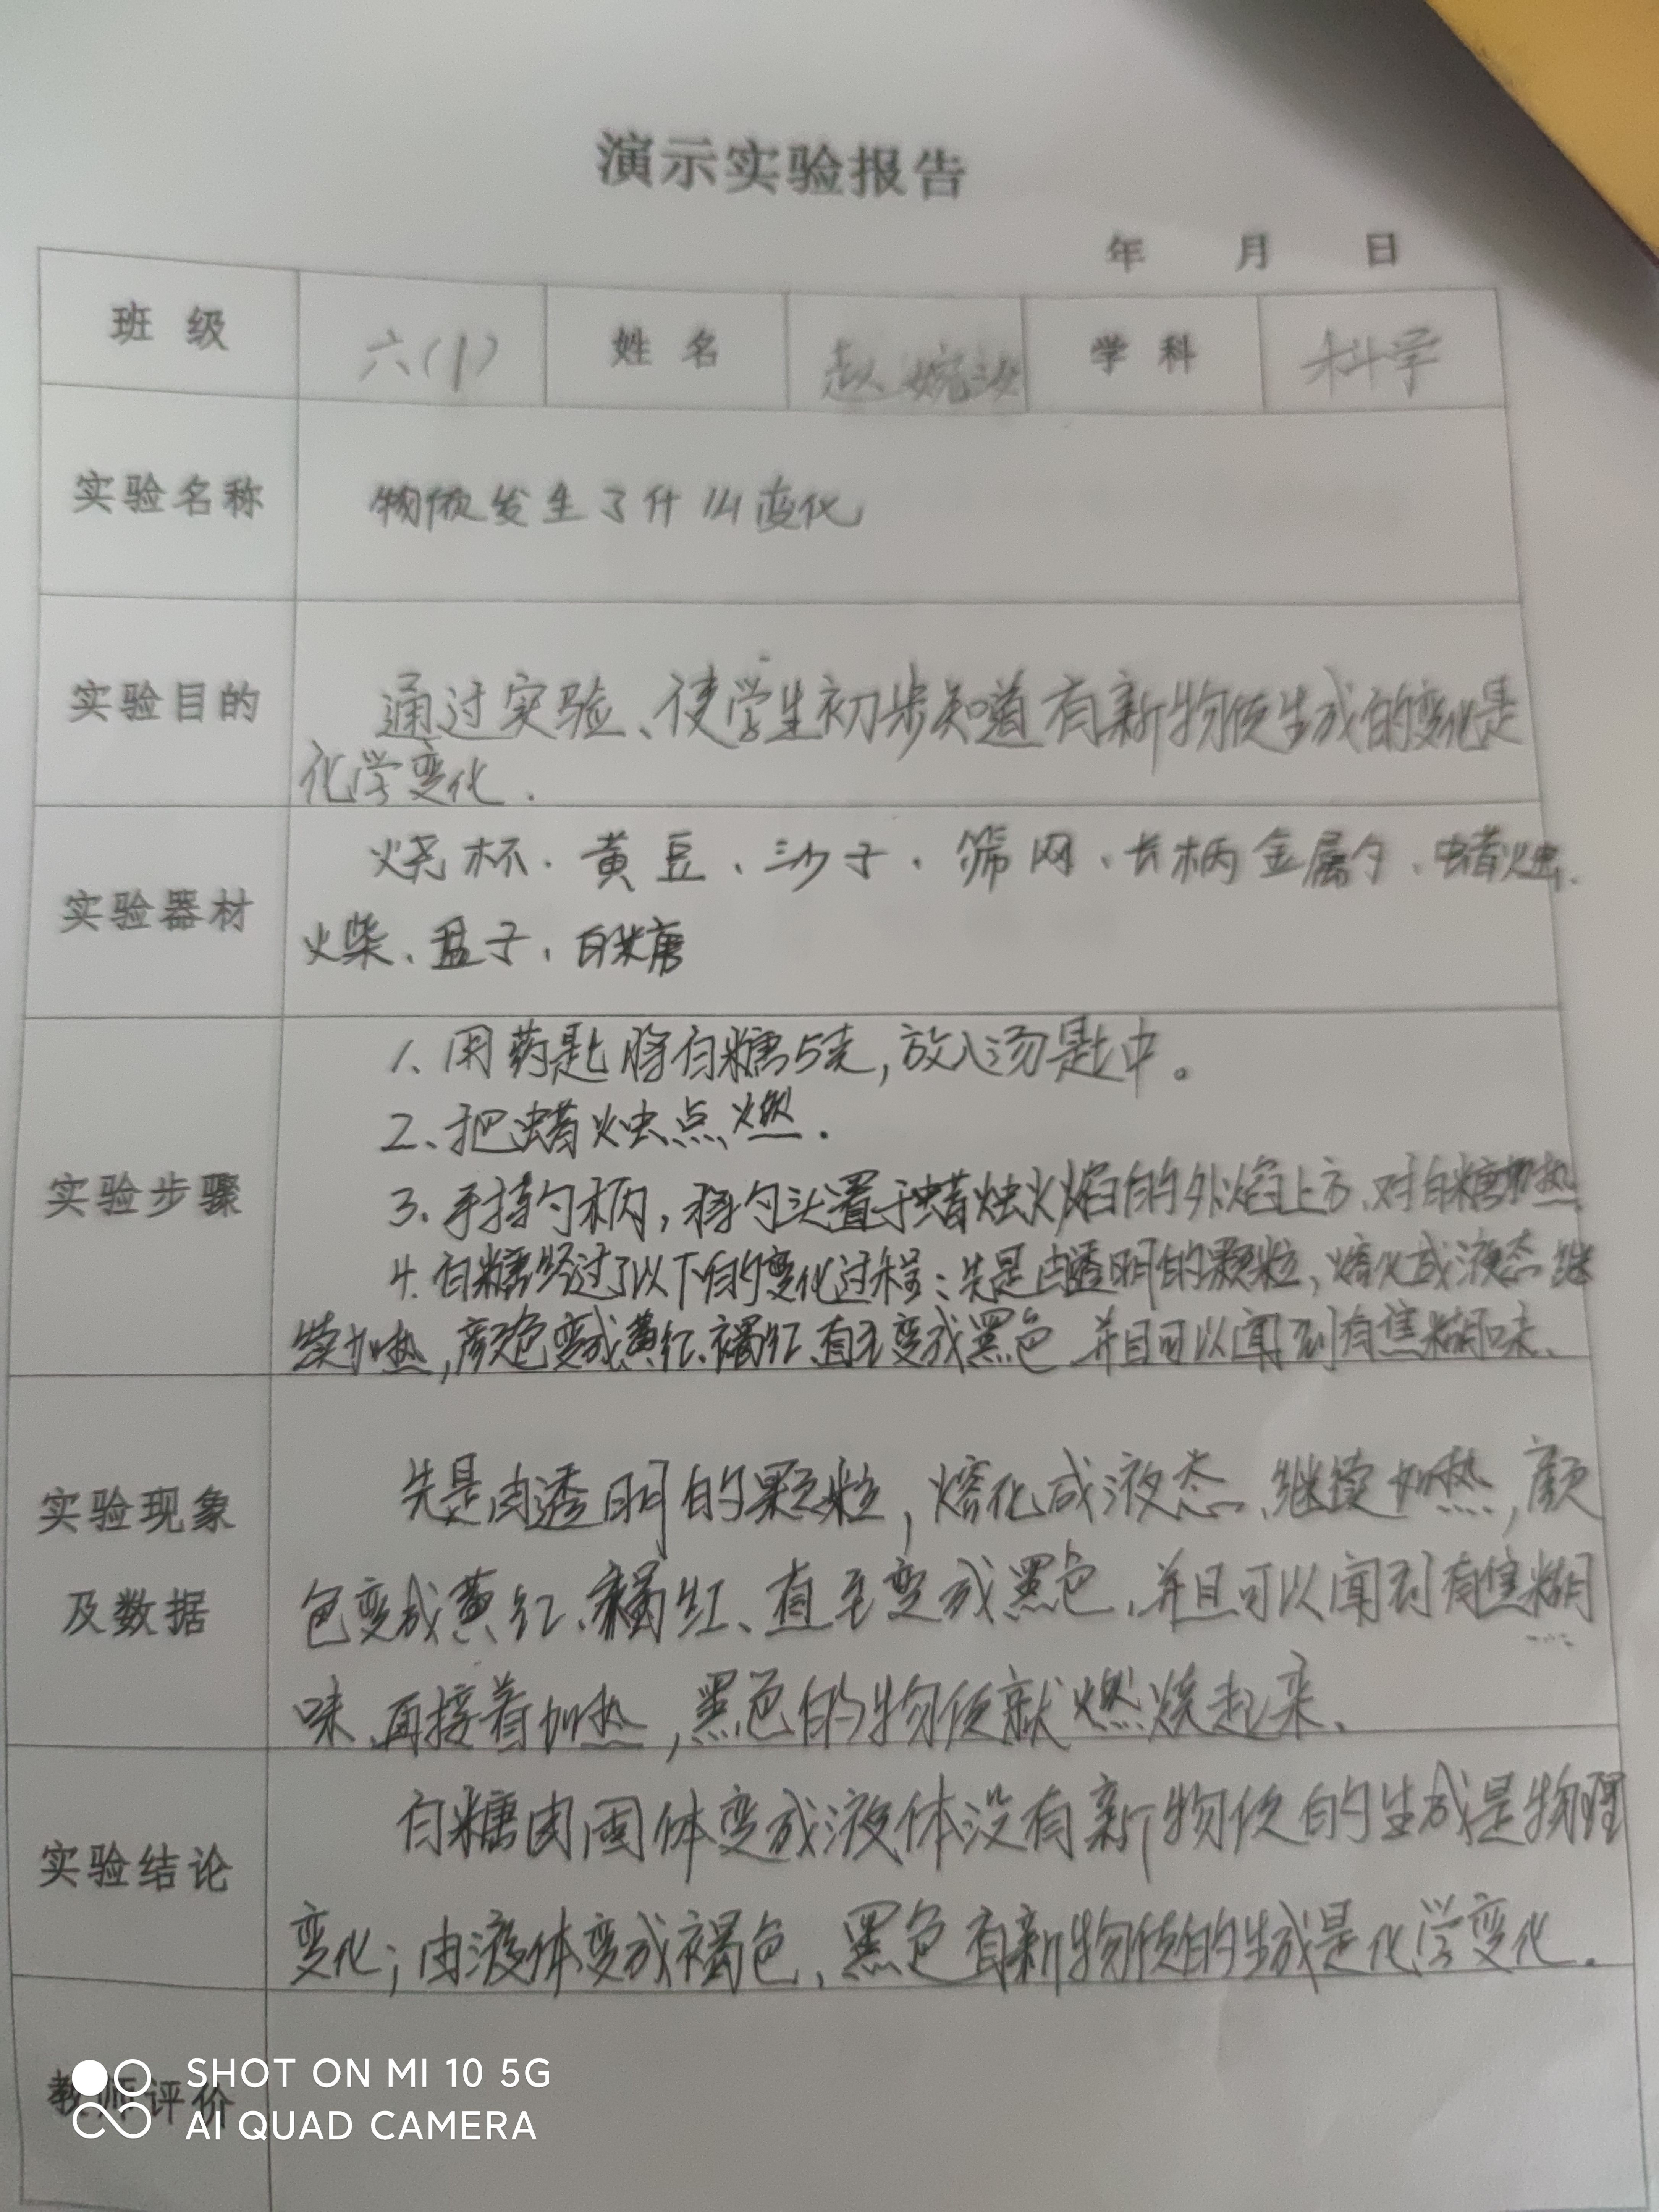 演示实验报告
年 月 日
班 级 六(1) 姓 名 赵婉汝 学 科 科学
实验名称 物质发生了什么变化
实验目的 通过实验、使学生初步知道有新物质生成的变化是
化学变化.
实验器材 烧杯、黄豆、沙子、筛网、长柄金属勺、蜡烛、
火柴、盘子、白糖
实验步骤 1、用药匙将白糖5克,放入汤匙中。
2、把蜡烛点燃.
3、手持勺柄,将勺头置于蜡烛火焰的外焰上方、对白糖加热.
4、白糖经过了以下的变化过程:先是由透明的颗粒,熔化成液态继
续加热,颜色变成黄红、褐红、直至变成黑色、并且可以闻到有焦糊味、
实验现象
及数据
先是由透明的颗粒,熔化成液态、继续加热,颜
色变成黄红、褐红、直至变成黑色、并且可以闻到有焦糊
味、再接着加热,黑色的物质就燃烧起来、
实验结论 白糖由固体变成液体没有新物质的生成是物理
变化;由液体变成褐色、黑色有新物质的生成是化学变化.
教师评价
SHOT ON MI 10 5G
AI QUAD CAMERA